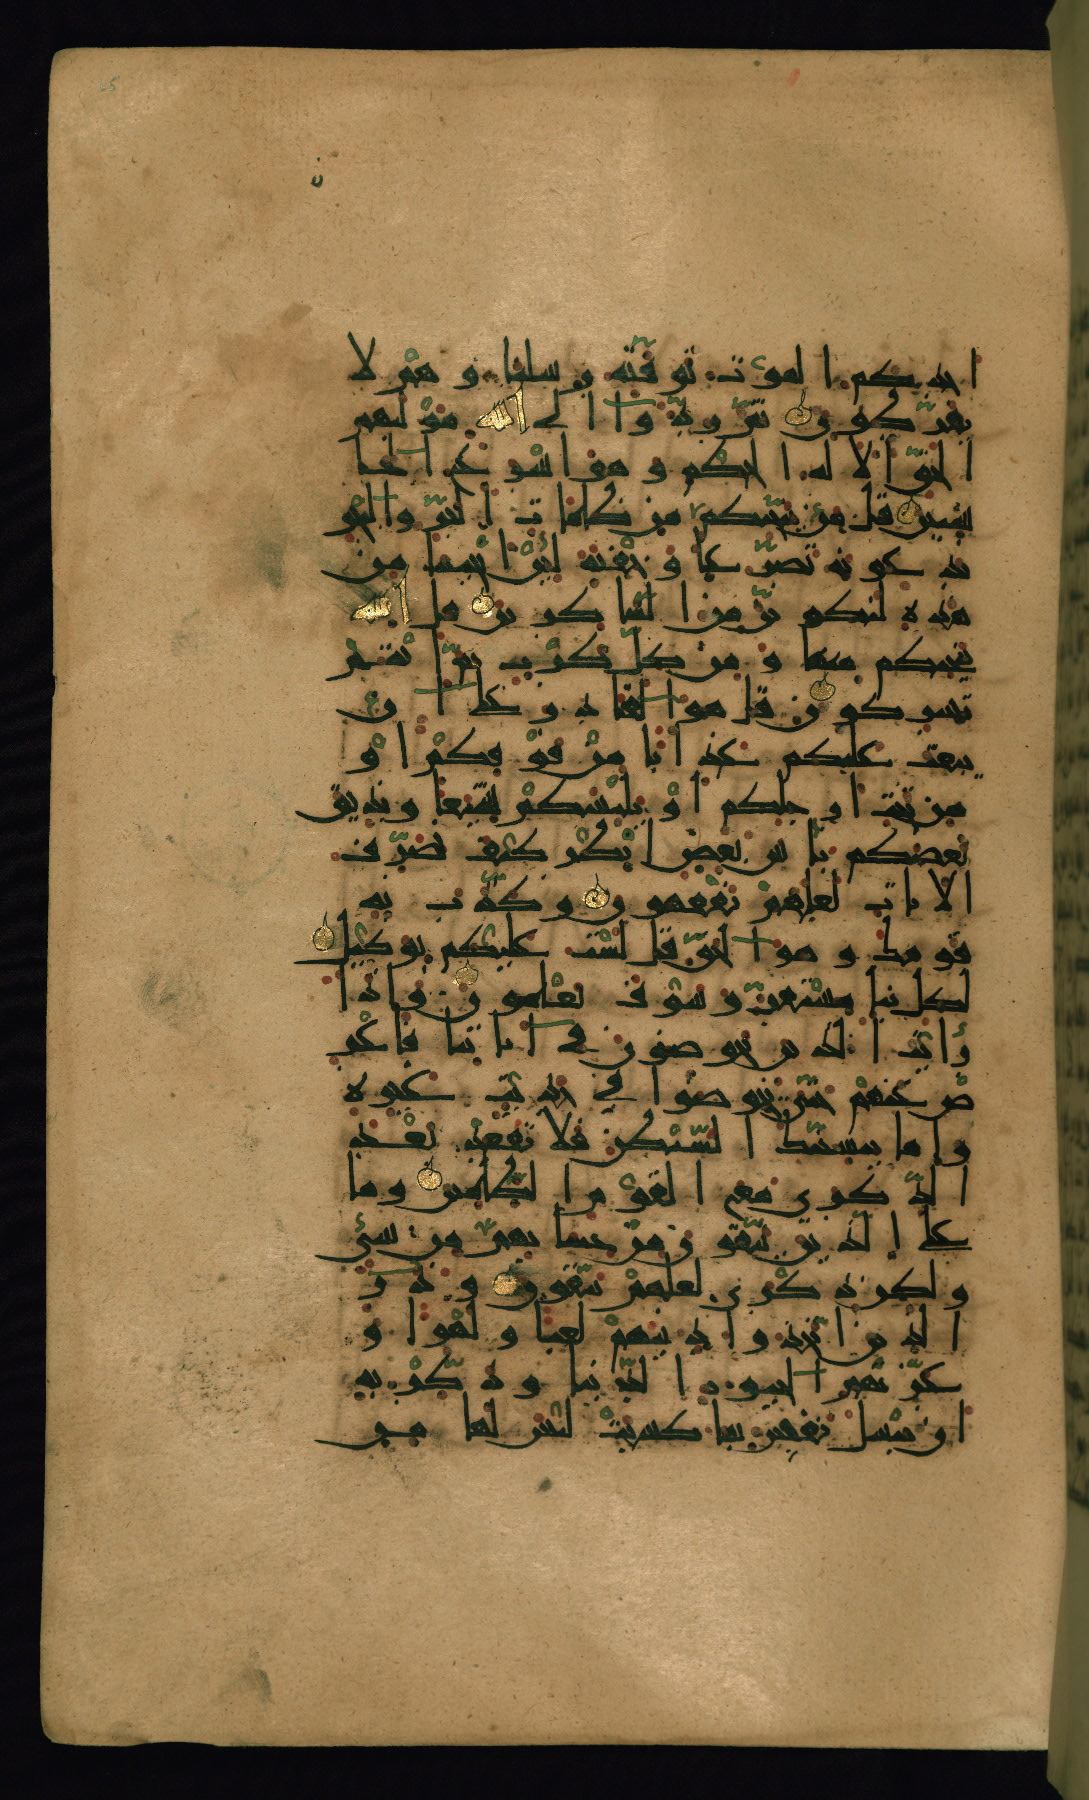 احدكم الموت توفته رسلنا وهم لا
يفرطون ثم ردوا الى الله مولهم
الحق الا له الحكم وهو اسرع الحا
سبين قل من ينجيكم من ظلمات البر والبحر
تدعونه تضرعا وخفية لئن انجينا من
هذه لنكونن من الشاكرين قل الله
ينجيكم منها ومن كل كرب ثم انتم
تشركون قل هو القادر على ان
يبعث عليكم عذابا من فوقكم او
من تحت ارجلكم او يلبسكم شيعا ويذيق
بعضكم باس بعض انظر كيف نصرف
الايات لعلهم يفقهون وكذب به
قومك وهو الحق قل لست عليكم بوكيل
لكل نبا مستقر وسوف تعلمون واذا
رايت الذين يخوضون في اياتنا فاعر
ض عنهم حتى يخوضوا في حديث غيره
واما ينسينك الشيطن فلا تقعد بعد
الذكرى مع القوم الظالمين وما
على الذين يتقون من حسابهم من شيء
ولكن ذكرى لعلهم يتقون وذر
الذين اتخذوا دينهم لعبا ولهوا و
غرتهم الحيوة الدنيا وذكر به
ان تبسل نفس بما كسبت ليس لها من